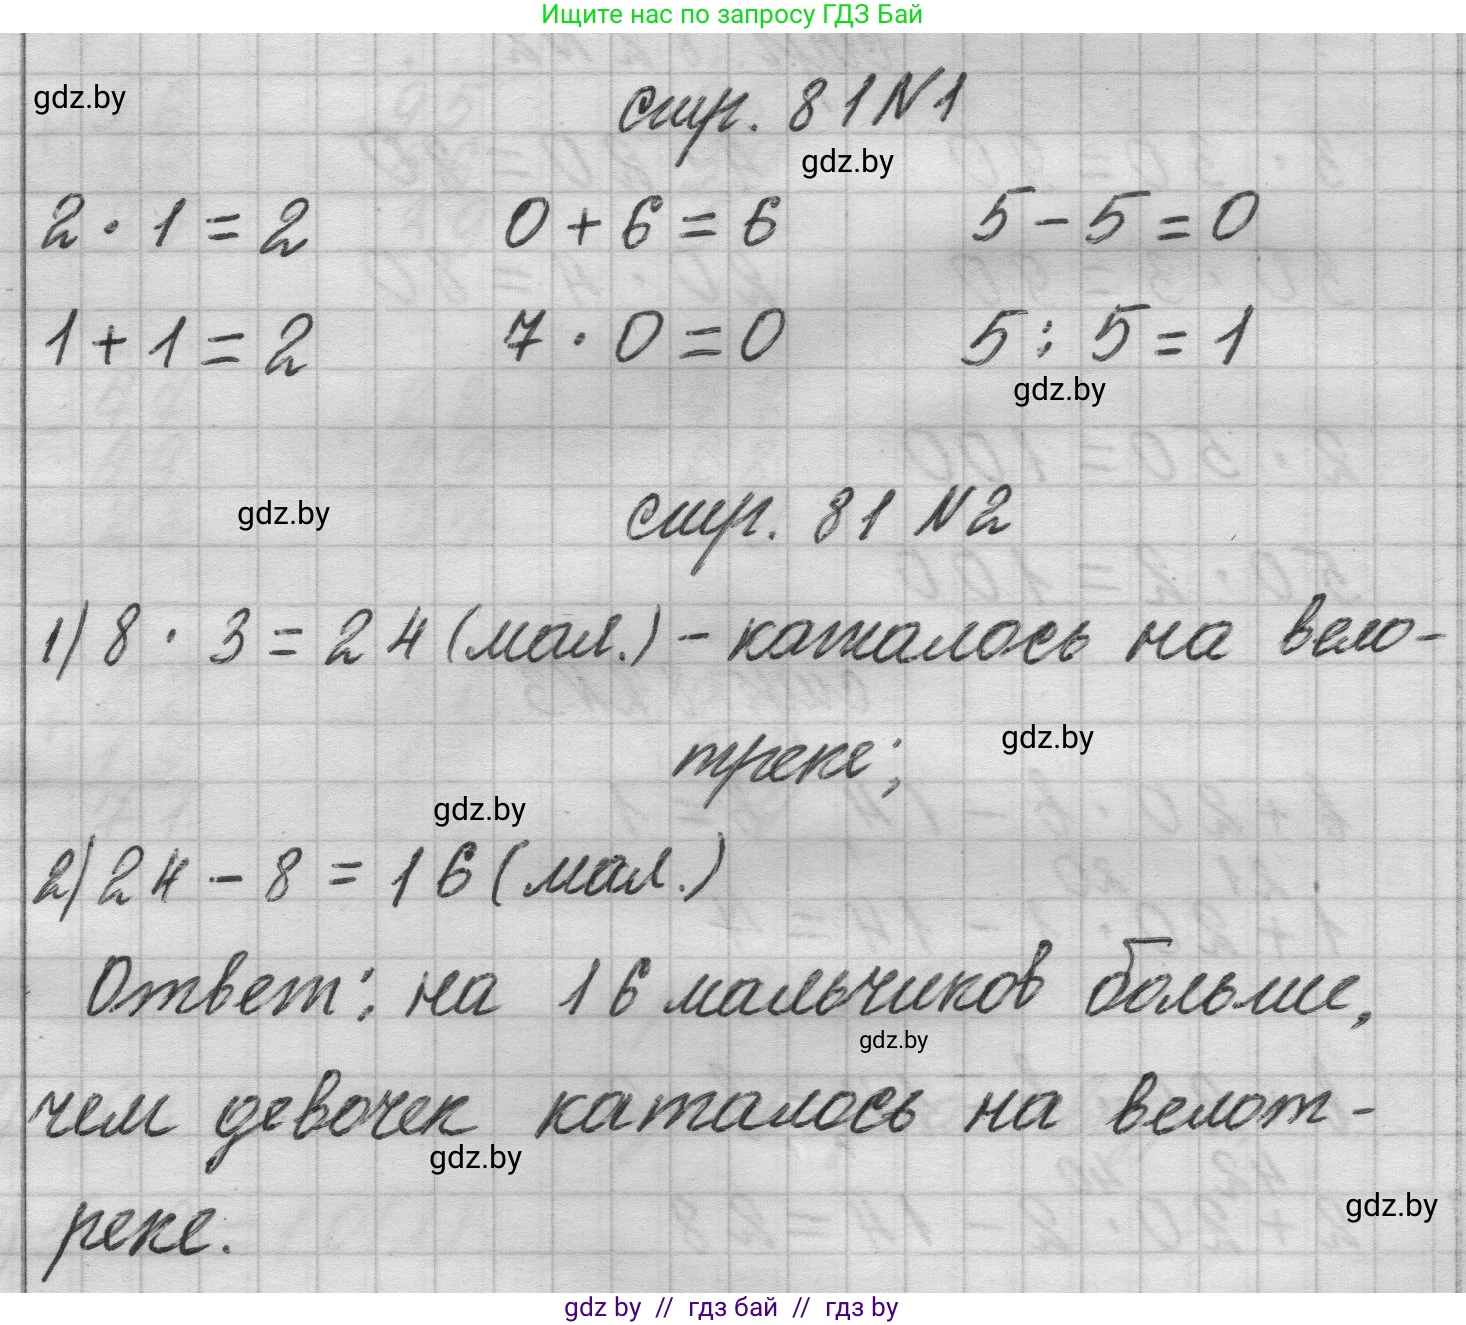 Ищите нас по запросу ГДЗ Бай
gdz.by
стр. 81 №1
gdz.by
2 · 1 = 2 0 + 6 = 6 5 - 5 = 0
1 + 1 = 2 7 · 0 = 0 5 : 5 = 1
gdz.by
gdz.by
стр. 81 №2
1) 8 · 3 = 24 (мал.) - каталось на вело-
треке;
gdz.by
gdz.by
2) 24 - 8 = 16 (мал.)
Ответ: на 16 мальчиков больше,
gdz.by
чем девочек каталось на велот-
gdz.by
реке.
gdz.by
gdz by // гдз бай // гдз by